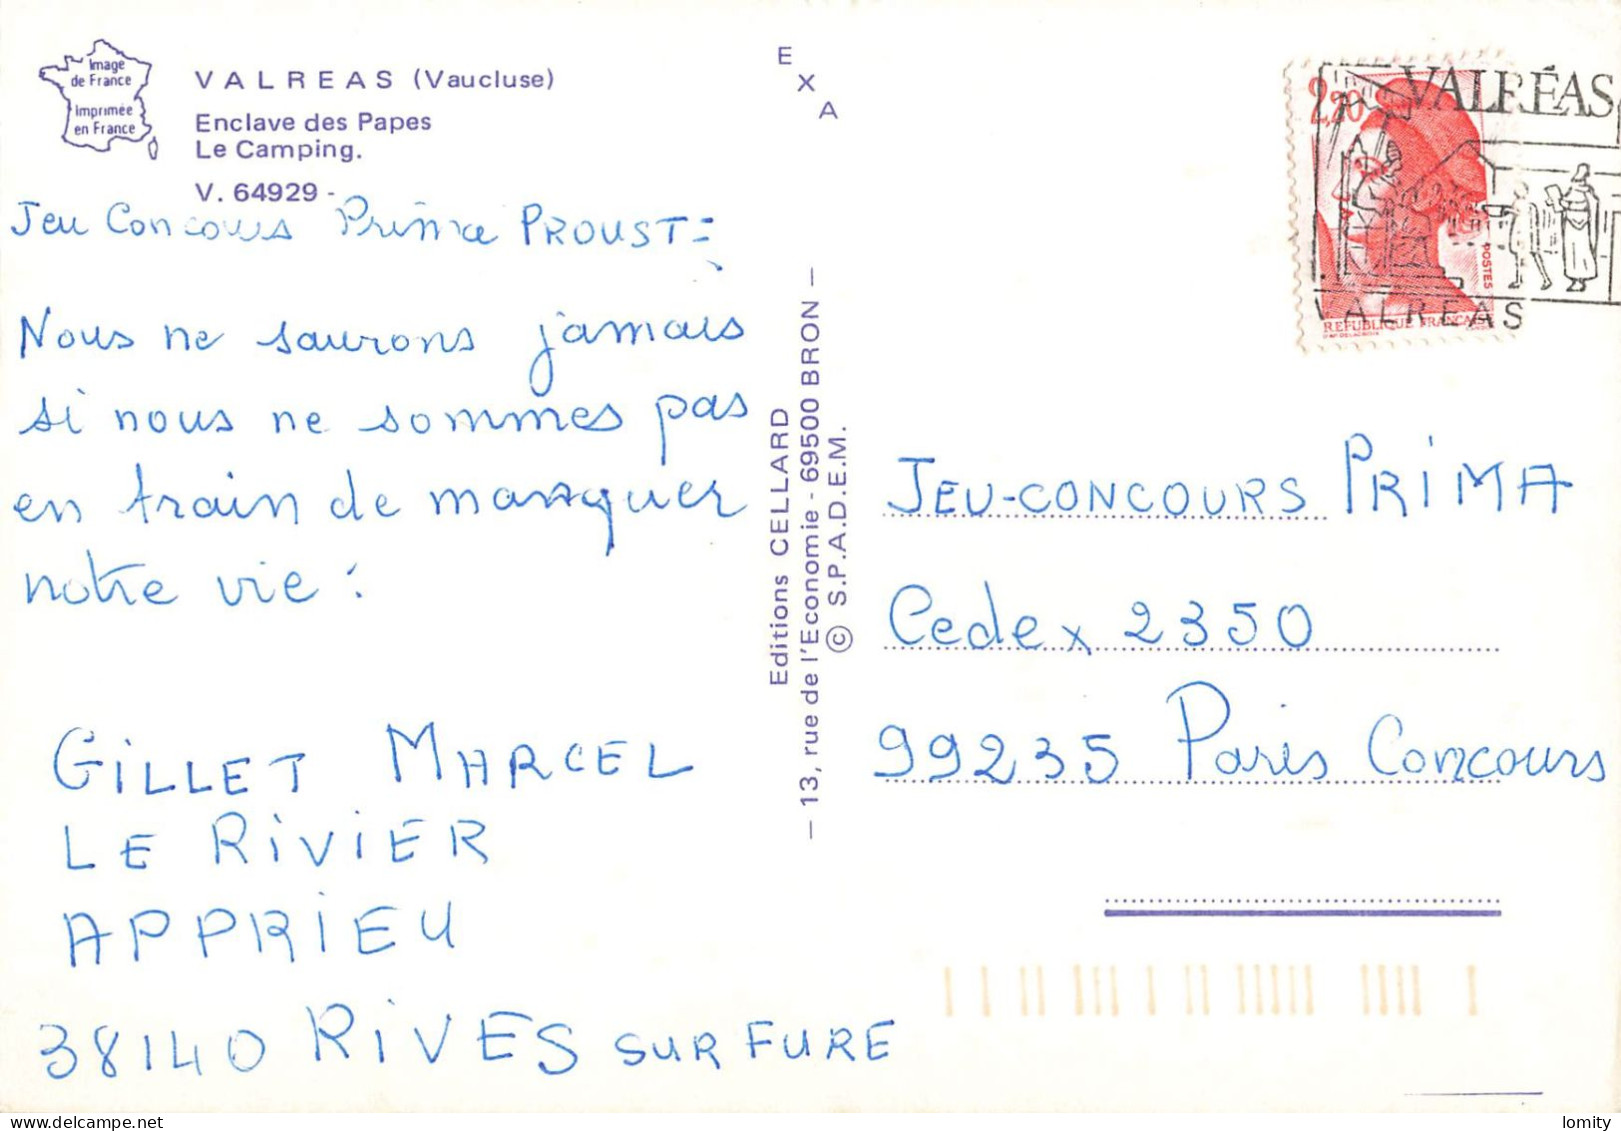 Image
de France
Imprimée
en France
VALREAS (Vaucluse)
Enclave des Papes
Le Camping.
V. 64929 -
Jeu Concours Prima PROUST =
Nous ne saurons jamais
si nous ne sommes pas
en train de manquer
notre vie :
GILLET MARCEL
LE RIVIER
APPRIEU
38140 RIVES SUR FURE
EXA
Editions CELLARD
— 13, rue de l'Economie - 69500 BRON —
© S.P.A.D.E.M.
2,20
POSTES
REPUBLIQUE FRANCAISE
VALRÉAS
VALREAS
JEU-CONCOURS PRIMA
Cedex 2350
99235 Paris Concours
lomity